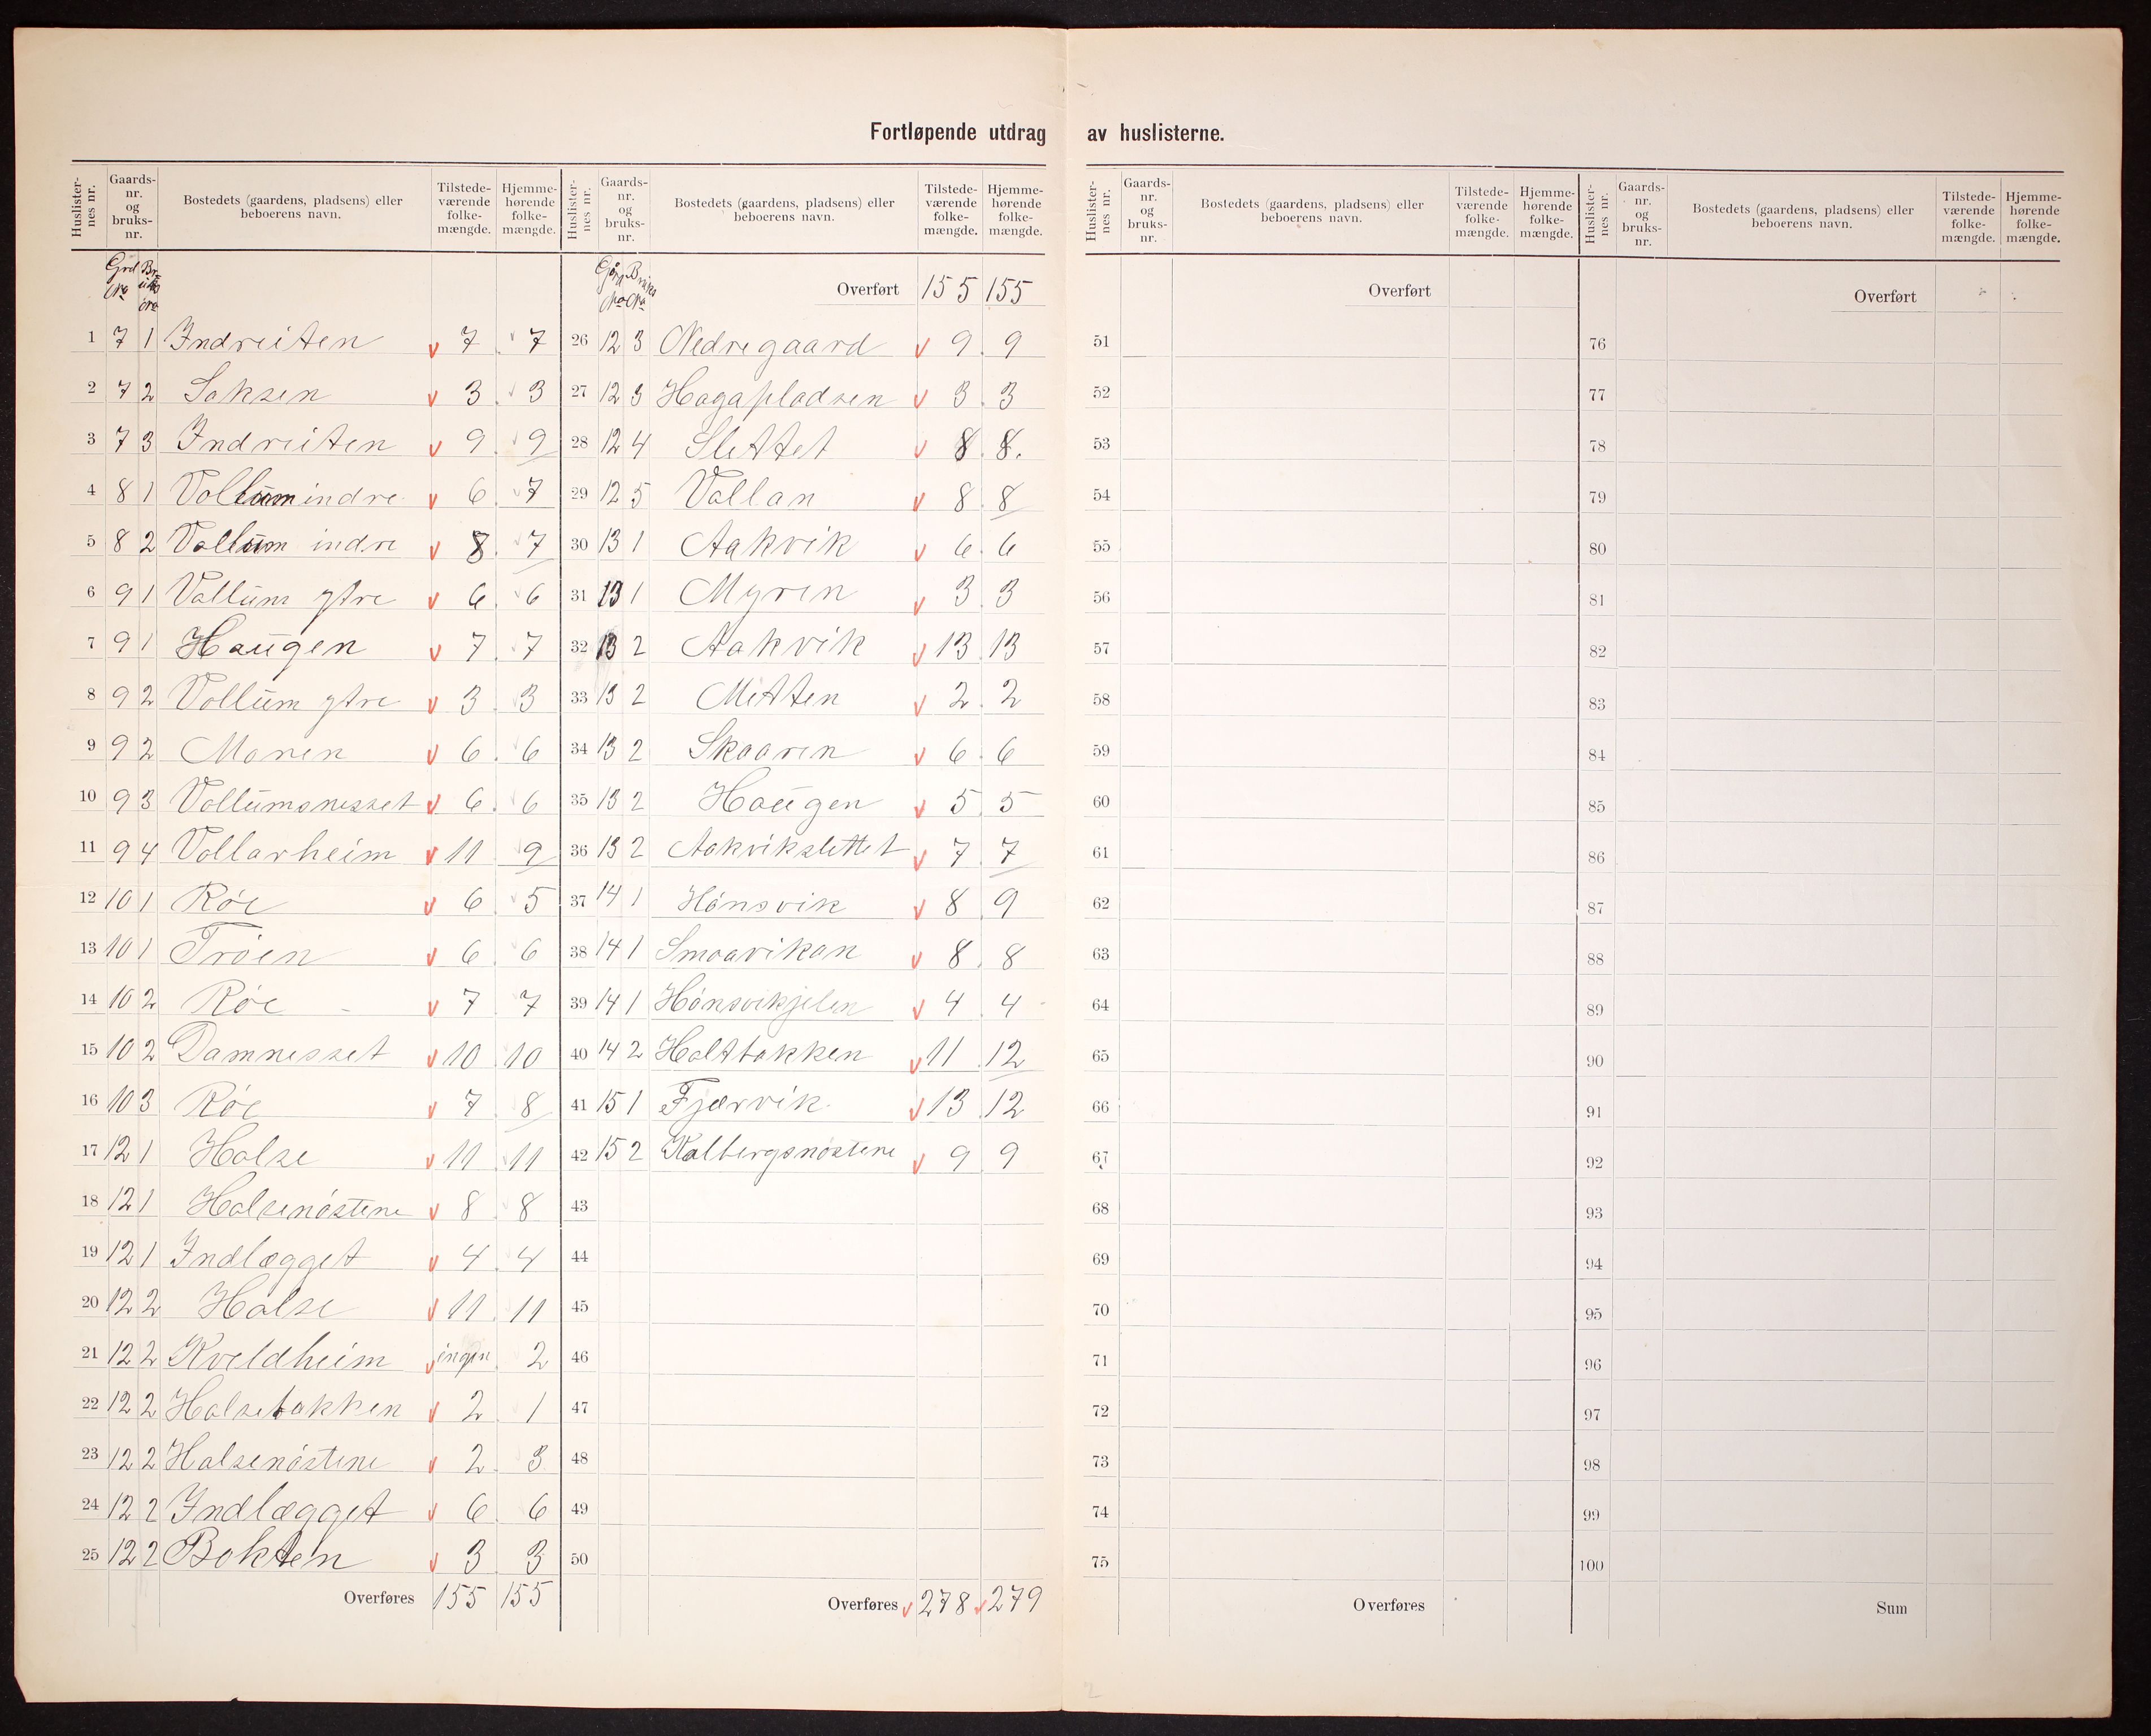 Fortløpende utdrag av huslisterne.
Huslisternes nr. Gaards-nr. og bruks-nr. Bostedets (gaardens, pladsens) eller beboerens navn. Tilstedeværende folkemængde. Hjemmehørende folkemængde.
Grd No Bruks No
1 7 1 Indreiten 7 7
2 7 2 Saksen 3 3
3 7 3 Indreiten 9 9
4 8 1 Vollum indre 6 7
5 8 2 Vollum indre 8 7
6 9 1 Vollum ytre 6 6
7 9 1 Haugen 7 7
8 9 2 Vollum ytre 3 3
9 9 2 Moren 6 6
10 9 3 Vollumsnesset 6 6
11 9 4 Vollarheim 11 9
12 10 1 Röe 6 5
13 10 1 Tröen 6 6
14 10 2 Röe 7 7
15 10 2 Damnesset 10 10
16 10 3 Röe 7 8
17 12 1 Halse 11 11
18 12 1 Halsenöstene 8 8
19 12 1 Indlægget 4 4
20 12 2 Halse 11 11
21 12 2 Kveldheim ingen 2
22 12 2 Halsebakken 2 1
23 12 2 Halsenöstene 2 3
24 12 2 Indlægget 6 6
25 12 2 Bokten 3 3
Overføres 155 155
Huslisternes nr. Gaards-nr. og bruks-nr. Bostedets (gaardens, pladsens) eller beboerens navn. Tilstedeværende folkemængde. Hjemmehørende folkemængde.
Gård No Bruks No
Overført 155 155
26 12 3 Nedregaard 9 9
27 12 3 Hagapladsen 3 3
28 12 4 Slettet 8 8.
29 12 5 Vollan 8 8
30 13 1 Aakvik 6 6
31 13 1 Myren 3 3
32 13 2 Aakvik 13 13
33 13 2 Mitten 2 2
34 13 2 Skaaren 6 6
35 13 2 Haugen 5 5
36 13 2 Aakvikslettet 7 7
37 14 1 Hönsvik 8 9
38 14 1 Smaavikan 8 8
39 14 1 Hönsvikjelen 4 4
40 14 2 Holtbakken 11 12
41 15 1 Fjærvik 13 12
42 15 2 Kalbergsnöstene 9 9
43
44
45
46
47
48
49
50
Overføres 278 279
Huslisternes nr. Gaards-nr. og bruks-nr. Bostedets (gaardens, pladsens) eller beboerens navn. Tilstedeværende folkemængde. Hjemmehørende folkemængde.
Overført
51
52
53
54
55
56
57
58
59
60
61
62
63
64
65
66
67
68
69
70
71
72
73
74
75
Overføres
Huslisternes nr. Gaards-nr. og bruks-nr. Bostedets (gaardens, pladsens) eller beboerens navn. Tilstedeværende folkemængde. Hjemmehørende folkemængde.
Overført
76
77
78
79
80
81
82
83
84
85
86
87
88
89
90
91
92
93
94
95
96
97
98
99
100
Sum
2